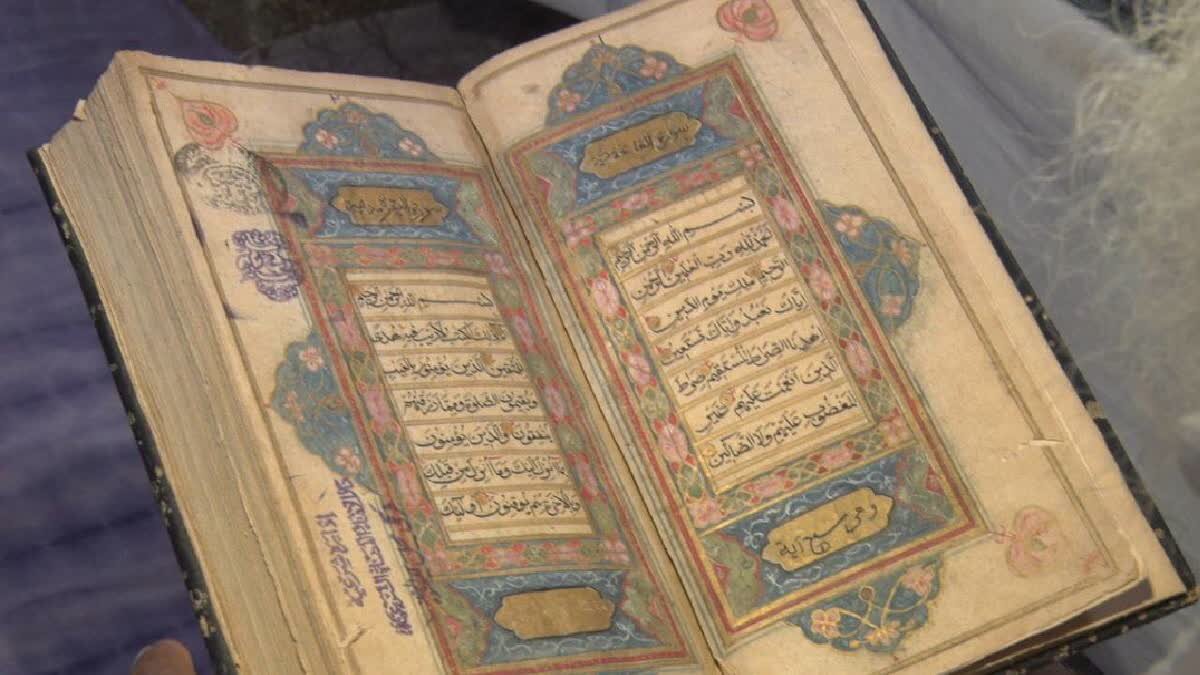 سورة الفاتحة
بسم الله الرحمن الرحيم
الحمد لله رب العلمين الرحمن
الرحيم ملك يوم الدين
إياك نعبد وإياك نستعين
اهدنا الصراط المستقيم صراط
الذين أنعمت عليهم غير
المغضوب عليهم ولا الضالين
وهي سبع آية
سورة البقرة مدنية
بسم الله الرحمن الرحيم
الم ذلك الكتب لا ريب فيه هدى
للمتقين الذين يؤمنون بالغيب
ويقيمون الصلوة ومما رزقنهم
ينفقون والذين يؤمنون
بما أنزل إليك وما أنزل من قبلك
وبالآخرة هم يوقنون أولئك